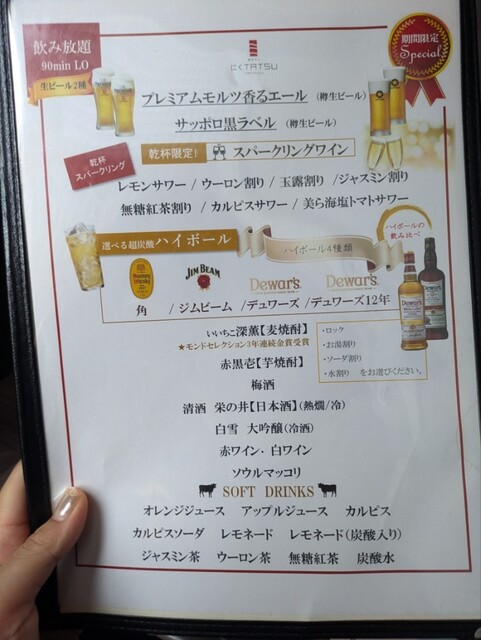 飲み放題
90min LO
生ビール2種
期間限定
Special
にくTATSU
プレミアムモルツ香るエール (樽生ビール)
サッポロ黒ラベル (樽生ビール)
乾杯
スパークリング
乾杯限定! スパークリングワイン
レモンサワー / ウーロン割り / 玉露割り /ジャスミン割り
無糖紅茶割り / カルピスサワー / 美ら海塩トマトサワー
選べる超炭酸ハイボール
ハイボール4種類
ハイボールの
飲み比べ
JIM BEAM
Dewar's
Dewar's
角 /ジムビーム /デュワーズ /デュワーズ12年
いいちこ深薫【麦焼酎】
★モンドセレクション3年連続金賞受賞
赤黒壱【芋焼酎】
・ロック
・お湯割り
・ソーダ割り
・水割り をお選びください。
梅酒
清酒 栄の井【日本酒】(熱燗/冷)
白雪 大吟醸(冷酒)
赤ワイン・白ワイン
ソウルマッコリ
SOFT DRINKS
オレンジジュース アップルジュース カルピス
カルピスソーダ レモネード レモネード(炭酸入り)
ジャスミン茶 ウーロン茶 無糖紅茶 炭酸水